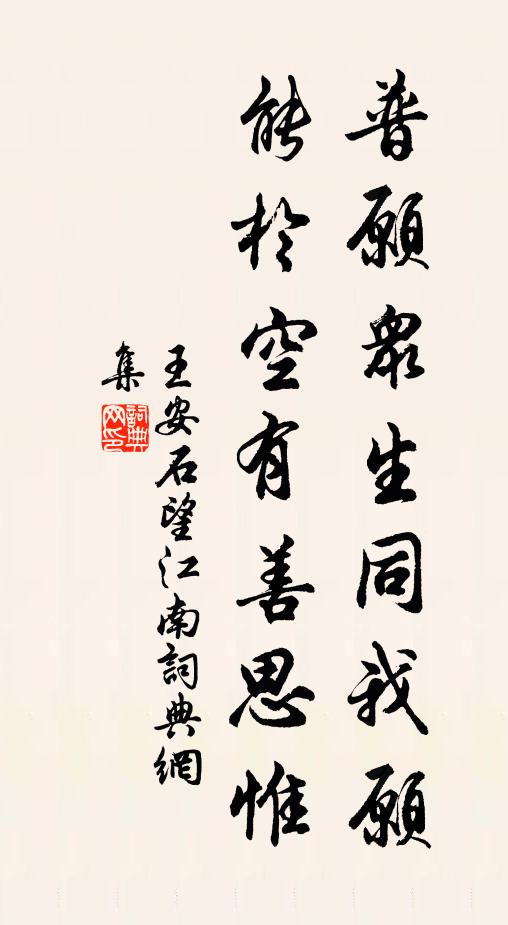 普願眾生同我願
能於空有善思惟
王安石望江南詞典網
集
詞典网印